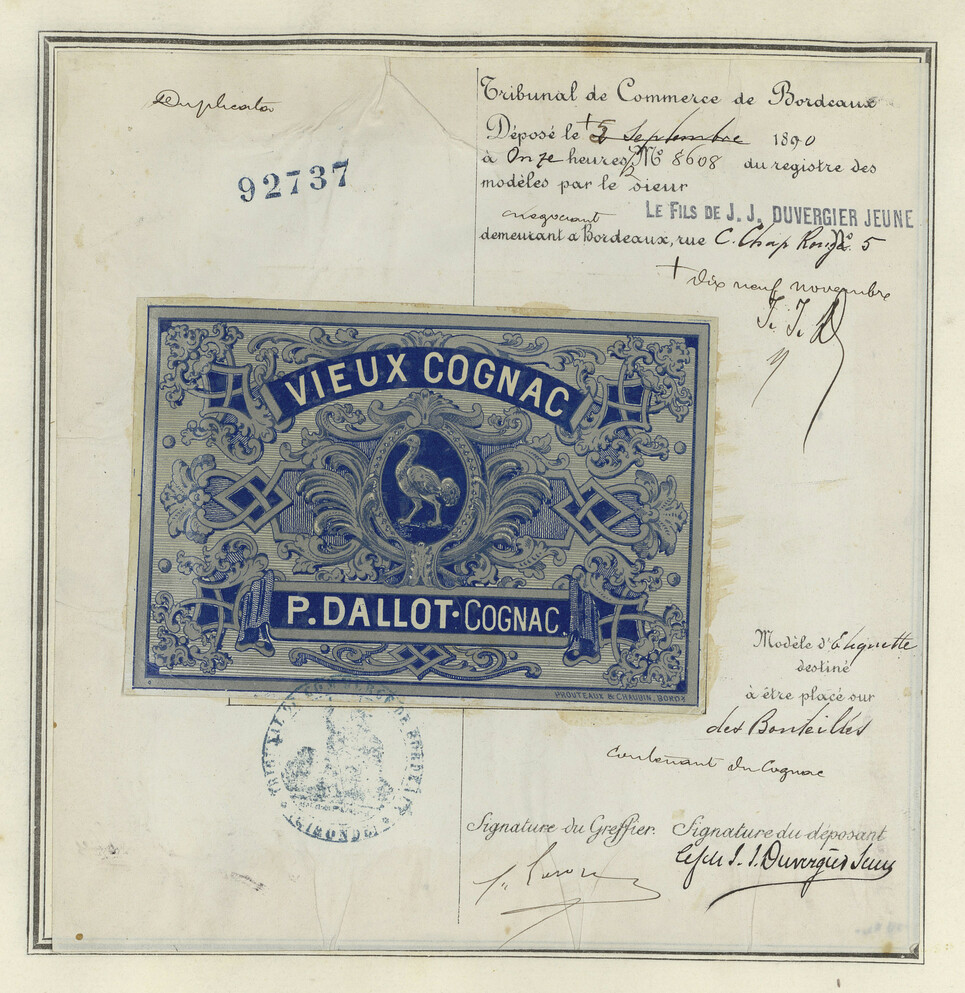 Duplicata
92737
Tribunal de Commerce de Bordeaux
Déposé le + 5 Septembre 1890
à Onze heures, Nº 8608 du registre des
modèles par le sieur
LE FILS DE J. J. DUVERGIER JEUNE
négociant
demeurant à Bordeaux, rue C. Chap Rouge Nº. 5
+ dix neuf novembre
J. J. D
VIEUX COGNAC
P. DALLOT·COGNAC.
PROUTEAUX & CHAUDIN, BORDX
Modèle d'Etiquette
destiné
à être placé sur
des Bouteilles
contenant du Cognac
TRIBUNAL DE COMMERCE DE BORDEAUX
(GIRONDE)
Signature du Greffier. Signature du déposant
Le fils J. J. Duvergier Jeune